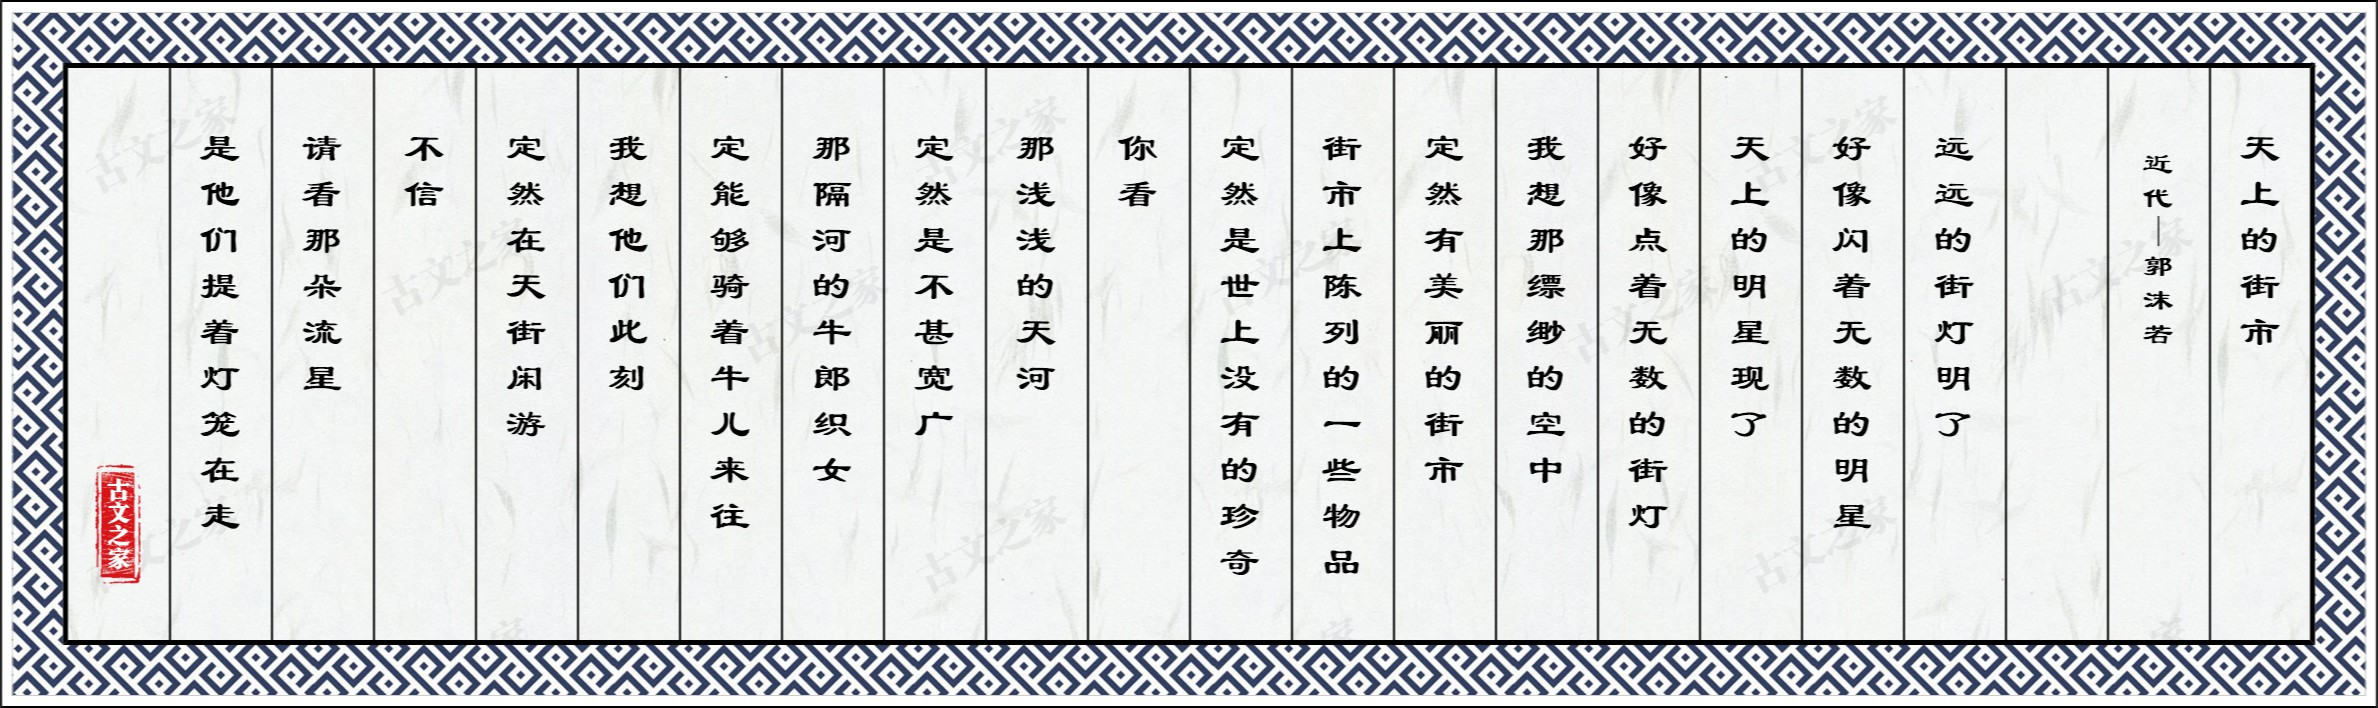 天上的街市
近代—郭沫若
远远的街灯明了
好像闪着无数的明星
天上的明星现了
好像点着无数的街灯
我想那缥缈的空中
定然有美丽的街市
街市上陈列的一些物品
定然是世上没有的珍奇
你看
那浅浅的天河
定然是不甚宽广
那隔河的牛郎织女
定能够骑着牛儿来往
我想他们此刻
定然在天街闲游
不信
请看那朵流星
是他们提着灯笼在走
古文之家